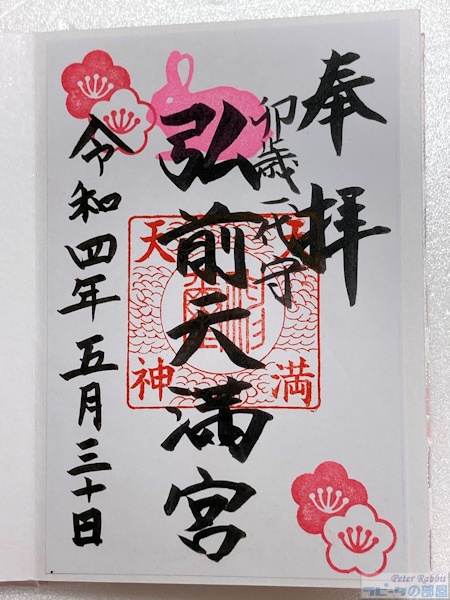 奉拝
卯歳一代守
弘前天満宮
令和四年五月三十日
天満
天神
Peter Rabbit
ラビータの部屋